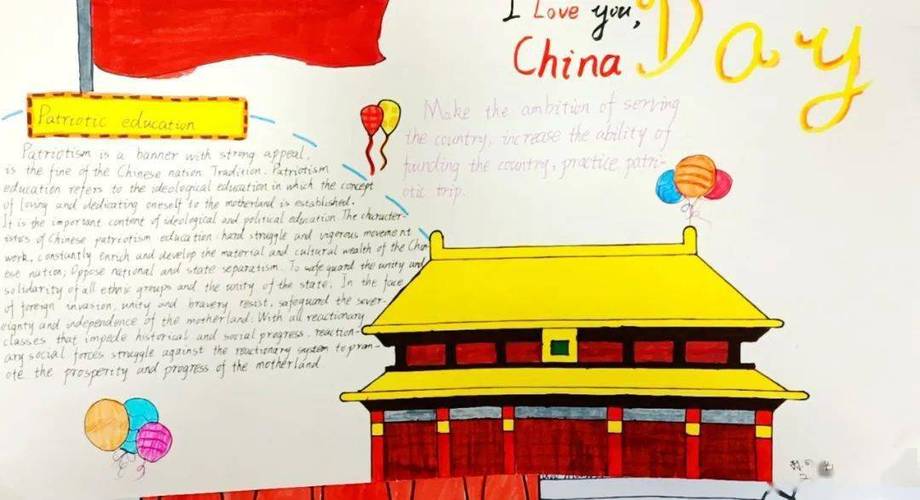 I Love you,
China
Day
Patriotic education
Patriotism is a banner with strong appeal.
is the fine of the Chinese nation Tradition. Patriotism
education refers to the ideological education in which the concept
of loving and dedicating oneself to the motherland is established.
It is the important content of ideological and political education The character-
istics of Chinese patriotism education: hard struggle and vigorous movement
work, constantly enrich and develop the material and cultural wealth of the Chin
ese nation; Oppose national and state separatism. To safe guard the unity and
solidarity of all ethnic groups and the unity of the state; In the face
of foreign invasion, unity and bravery, resist, safeguard the sover-
eignty and independence of the motherland; With all reactionary
classes that impede historical and social progress. reaction-
ary social forces struggle against the reactionary system to prom-
ote the prosperity and progress of the motherland
Make the ambition of serving
the country, increase the ability of
funding the country, practice patri-
otic trip.